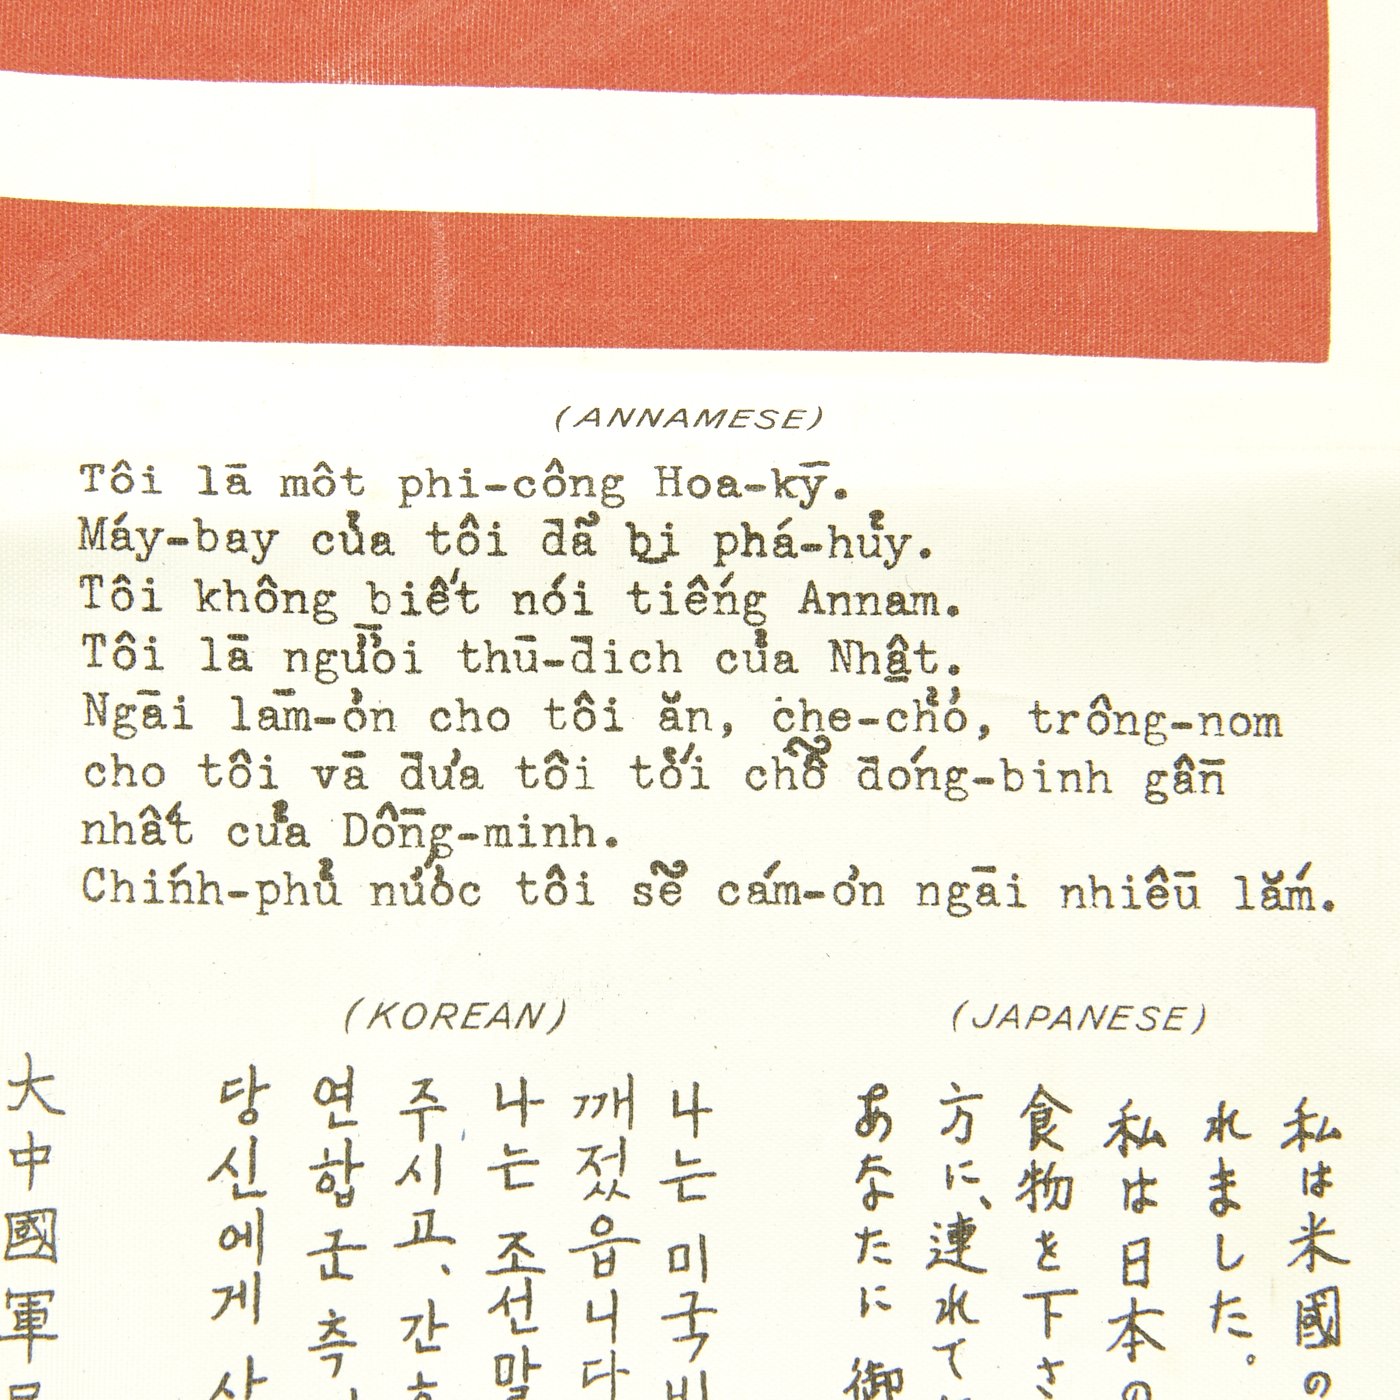 (ANNAMESE)
Tôi lā môt phi-công Hoa-kȳ.
Máy-bay của tôi đã bị phá-hủy.
Tôi không biết nói tiếng Annam.
Tôi lā người thū-đich của Nhật.
Ngāi lām-ơn cho tôi ăn, che-chở, trông-nom
cho tôi vā đưa tôi tới chỗ đóng-binh gần
nhất của Dồng-minh.
Chính-phủ nước tôi sẽ cám-ơn ngāi nhiêū lắm.
(KOREAN)
(JAPANESE)
私は米國の
れました。
私は日本の
食物を下さ
方に、連れて
あなたに御
나는 미국 비
깨졌읍니다
나는 조선말
주시고、간호
연합군 측
당신에게 사
大中國軍